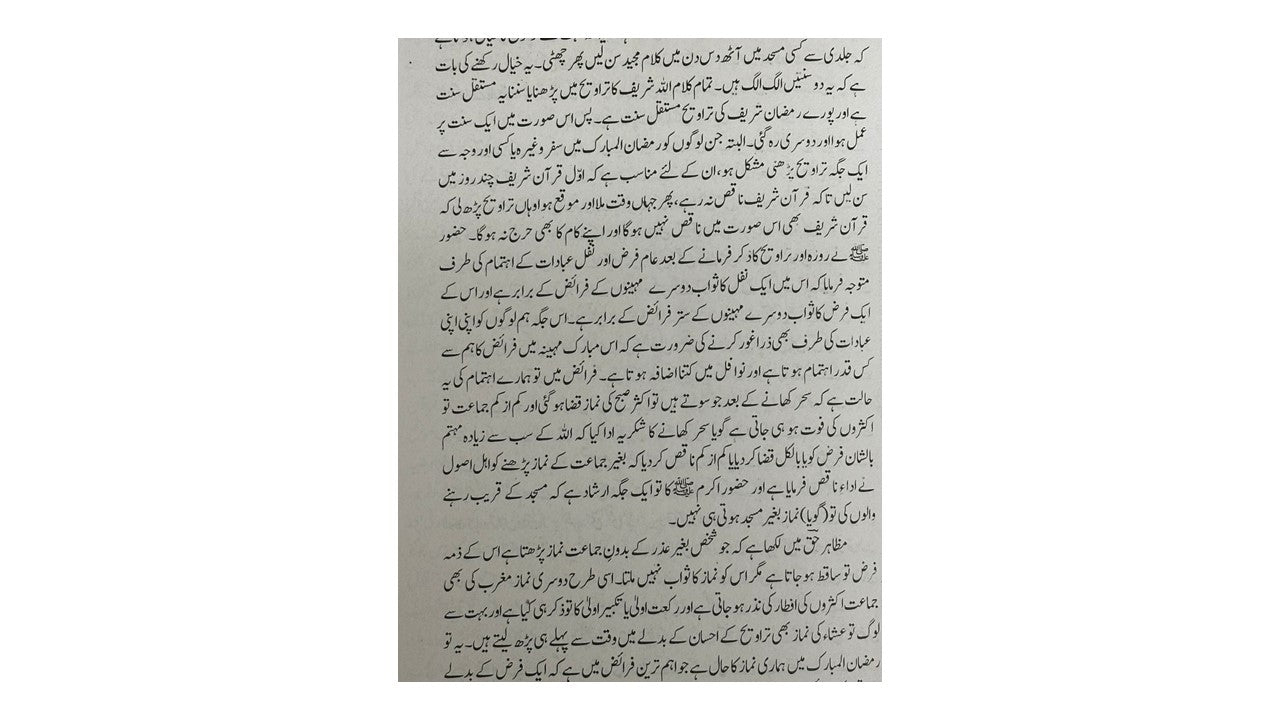 کہ جلدی سے کسی مسجد میں آٹھ دس دن میں کلام مجید سن لیں پھر چھٹی۔ یہ خیال رکھنے کی بات
ہے کہ یہ دو سنتیں الگ الگ ہیں۔ تمام کلام اللہ شریف کا تراویح میں پڑھنا یا سننا یہ مستقل سنت
ہے اور پورے رمضان شریف کی تراویح مستقل سنت ہے۔ پس اس صورت میں ایک سنت پر
عمل ہوا اور دوسری رہ گئی۔ البتہ جن لوگوں کو رمضان المبارک میں سفر وغیرہ یا کسی اور وجہ سے
ایک جگہ تراویح پڑھنی مشکل ہو، ان کے لئے مناسب ہے کہ اوّل قرآن شریف چند روز میں
سن لیں تاکہ قرآن شریف ناقص نہ رہے، پھر جہاں وقت ملا اور موقع ہوا وہاں تراویح پڑھ لی کہ
قرآن شریف بھی اس صورت میں ناقص نہیں ہوگا اور اپنے کام کا بھی حرج نہ ہوگا۔ حضور
ﷺ نے روزہ اور تراویح کا ذکر فرمانے کے بعد عام فرض اور نفل عبادات کے اہتمام کی طرف
متوجہ فرمایا کہ اس میں ایک نفل کا ثواب دوسرے مہینوں کے فرائض کے برابر ہے اور اس کے
ایک فرض کا ثواب دوسرے مہینوں کے ستر فرائض کے برابر ہے۔ اس جگہ ہم لوگوں کو اپنی اپنی
عبادات کی طرف بھی ذرا غور کرنے کی ضرورت ہے کہ اس مبارک مہینہ میں فرائض کا ہم سے
کس قدر اہتمام ہوتا ہے اور نوافل میں کتنا اضافہ ہوتا ہے۔ فرائض میں تو ہمارے اہتمام کی یہ
حالت ہے کہ سحر کھانے کے بعد جو سوتے ہیں تو اکثر صبح کی نماز قضا ہوگئی اور کم از کم جماعت تو
اکثروں کی فوت ہو ہی جاتی ہے گویا سحر کھانے کا شکریہ ادا کیا کہ اللہ کے سب سے زیادہ مہتم
بالشان فرض کو یا بالکل قضا کر دیا یا کم از کم ناقص کر دیا کہ بغیر جماعت کے نماز پڑھنے کو اہل اصول
نے اداء ناقص فرمایا ہے اور حضور اکرم ﷺ کا تو ایک جگہ ارشاد ہے کہ مسجد کے قریب رہنے
والوں کی تو (گویا) نماز بغیر مسجد ہوتی ہی نہیں۔
مظاہر حق میں لکھا ہے کہ جو شخص بغیر عذر کے بدون جماعت نماز پڑھتا ہے اس کے ذمہ
فرض تو ساقط ہو جاتا ہے مگر اس کو نماز کا ثواب نہیں ملتا۔ اسی طرح دوسری نماز مغرب کی بھی
جماعت اکثروں کی افطار کی نذر ہو جاتی ہے اور رکعت اولیٰ یا تکبیر اولیٰ کا تو ذکر ہی کیا ہے اور بہت سے
لوگ تو عشاء کی نماز بھی تراویح کے احسان کے بدلے میں وقت سے پہلے ہی پڑھ لیتے ہیں۔ یہ تو
رمضان المبارک میں ہماری نماز کا حال ہے جو اہم ترین فرائض میں ہے کہ ایک فرض کے بدلے